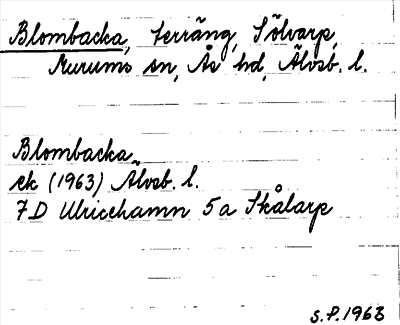 Blombacka, terräng, Sölvarp,
Murums sn, Ås hd, Älvsb. l.
Blombacka
ek (1963) Älvsb. l.
7D Ulricehamn 5a Skålarp
S.P. 1963